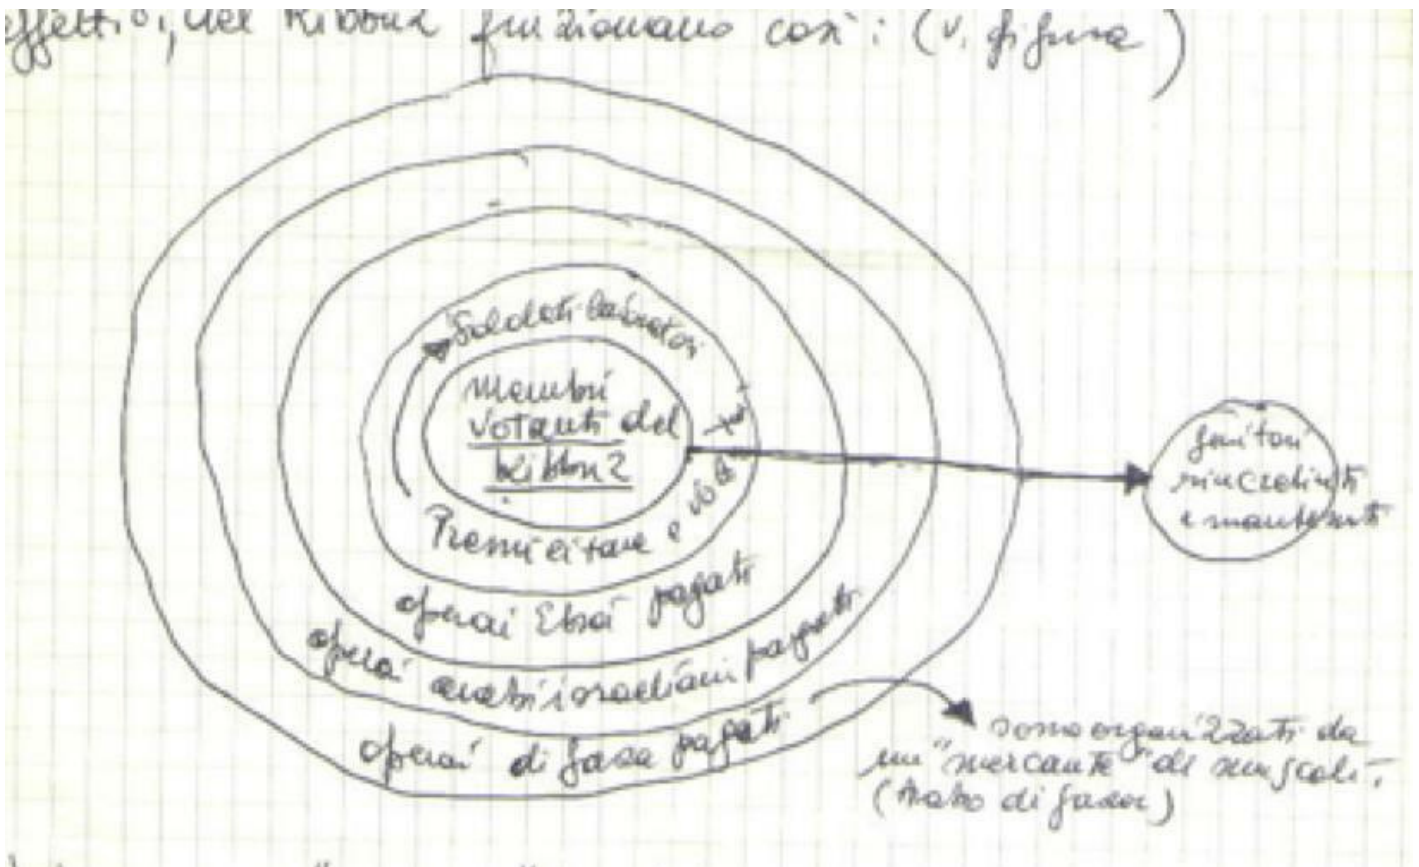 effettivi, nel Kibbuz funzionano così: (v. figura)
Soldati lavoratori
Membri
votanti del
Kibbuz
operai Ebrei pagati
operai arabi israeliani pagati
operai di Gaza pagati
genitori
rincretiniti
e mantenuti
sono organizzati da
un "mercante" di muscoli.
(Arabo di Gaza)